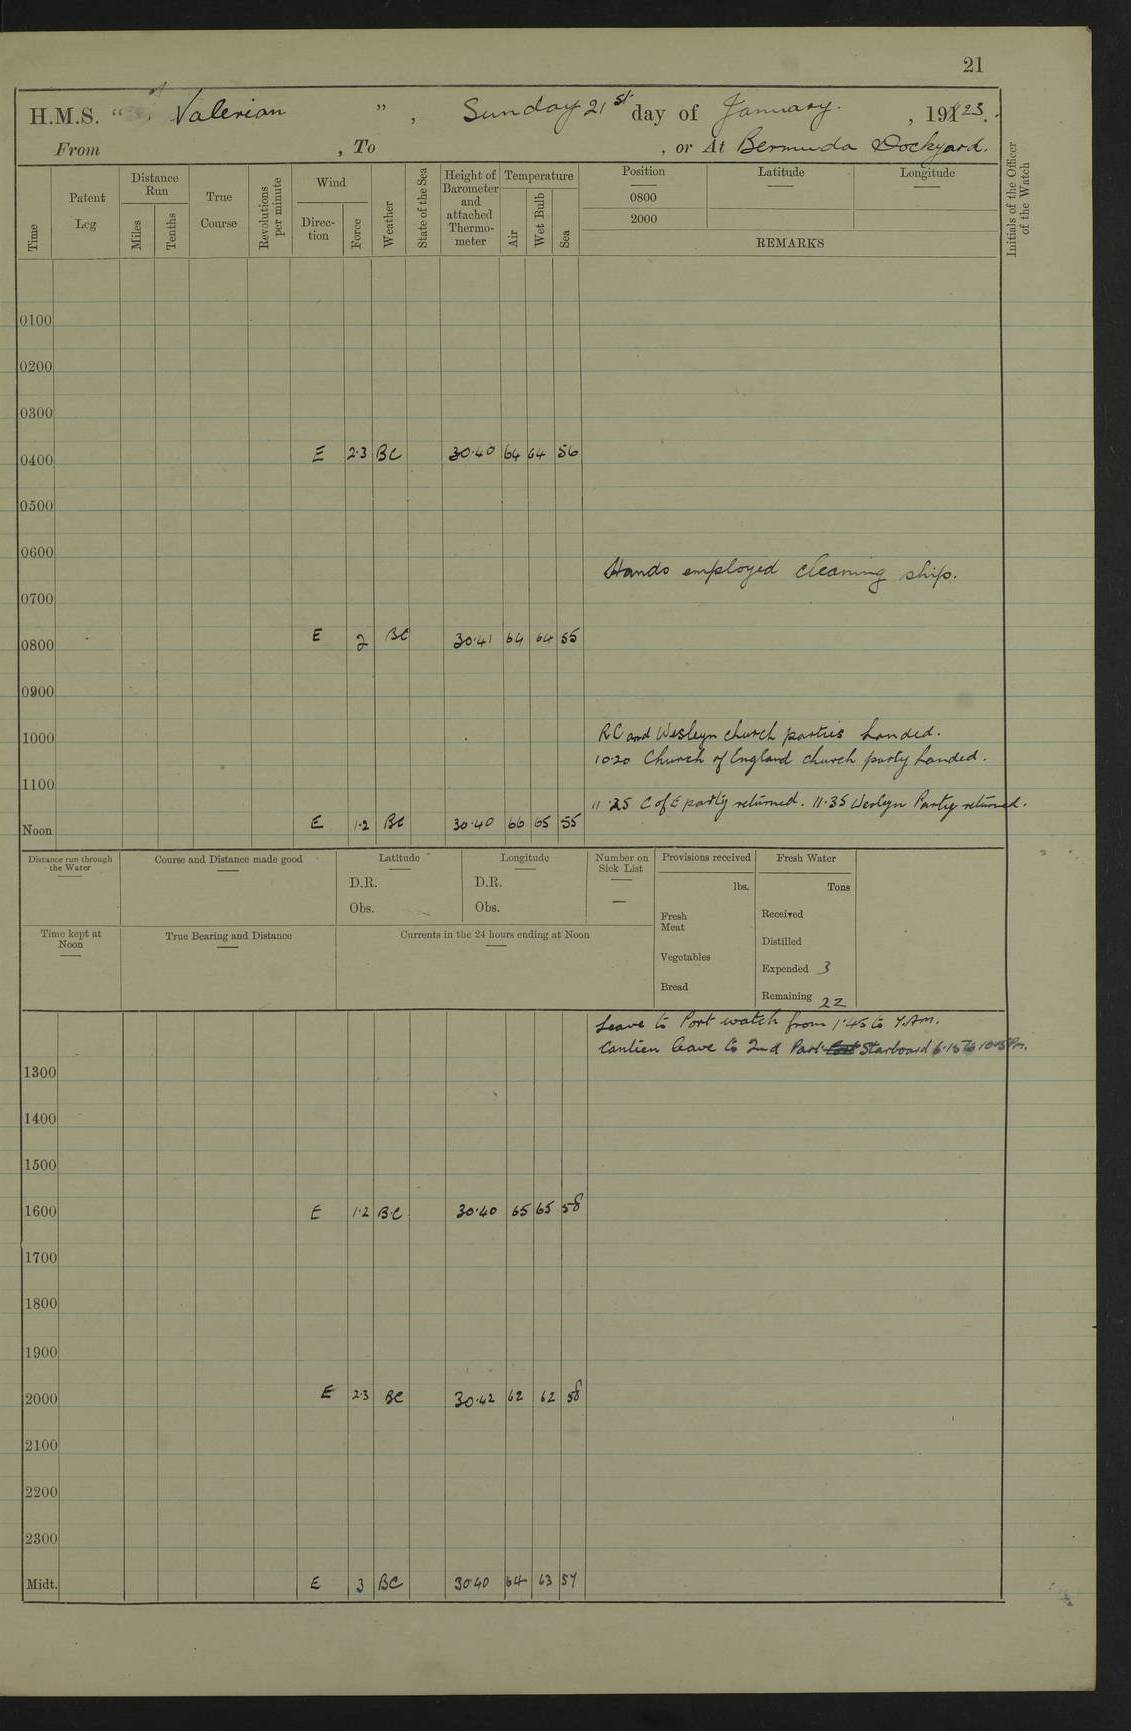 21
H.M.S. " Valerian ", Sunday 21st day of January. , 1923.
From , To , or At Bermuda Dockyard.
Time Patent Log Distance Run Miles Tenths True Course Revolutions per minute Wind Direc-tion Force Weather State of the Sea Height of Barometer and attached Thermo-meter Temperature Air Wet Bulb Sea Position 0800 2000 Latitude Longitude Initials of the Officer of the Watch
REMARKS
0100
0200
0300
0400 E 2·3 BC 30·40 64 64 56
0500
0600
Hands employed cleaning ship.
0700
0800 E 2 BC 30·41 64 64 55
0900
1000 RC and Wesleyn church parties landed.
10·20 Church of England church party landed.
1100
11·25 C of E party returned. 11·35 Wesleyn Party returned.
Noon E 1·2 BC 30·40 66 65 55
Distance run through the Water Course and Distance made good Latitude Longitude Number on Sick List Provisions received Fresh Water
D.R. D.R. lbs. Tons
Obs. Obs. —
Fresh Meat Received
Time kept at Noon True Bearing and Distance Currents in the 24 hours ending at Noon Distilled
Vegetables
Expended 3
Bread
Remaining 22
Leave to Port watch from 1·45 to 7.Am.
Canteen leave to 2nd Part Starboard 6·15 to 10·15 Pm.
1300
1400
1500
1600 E 1·2 B.C 30·40 65 65 58
1700
1800
1900
2000 E 2·3 BC 30·42 62 62 58
2100
2200
2300
Midt. E 3 BC 30·40 64 63 57